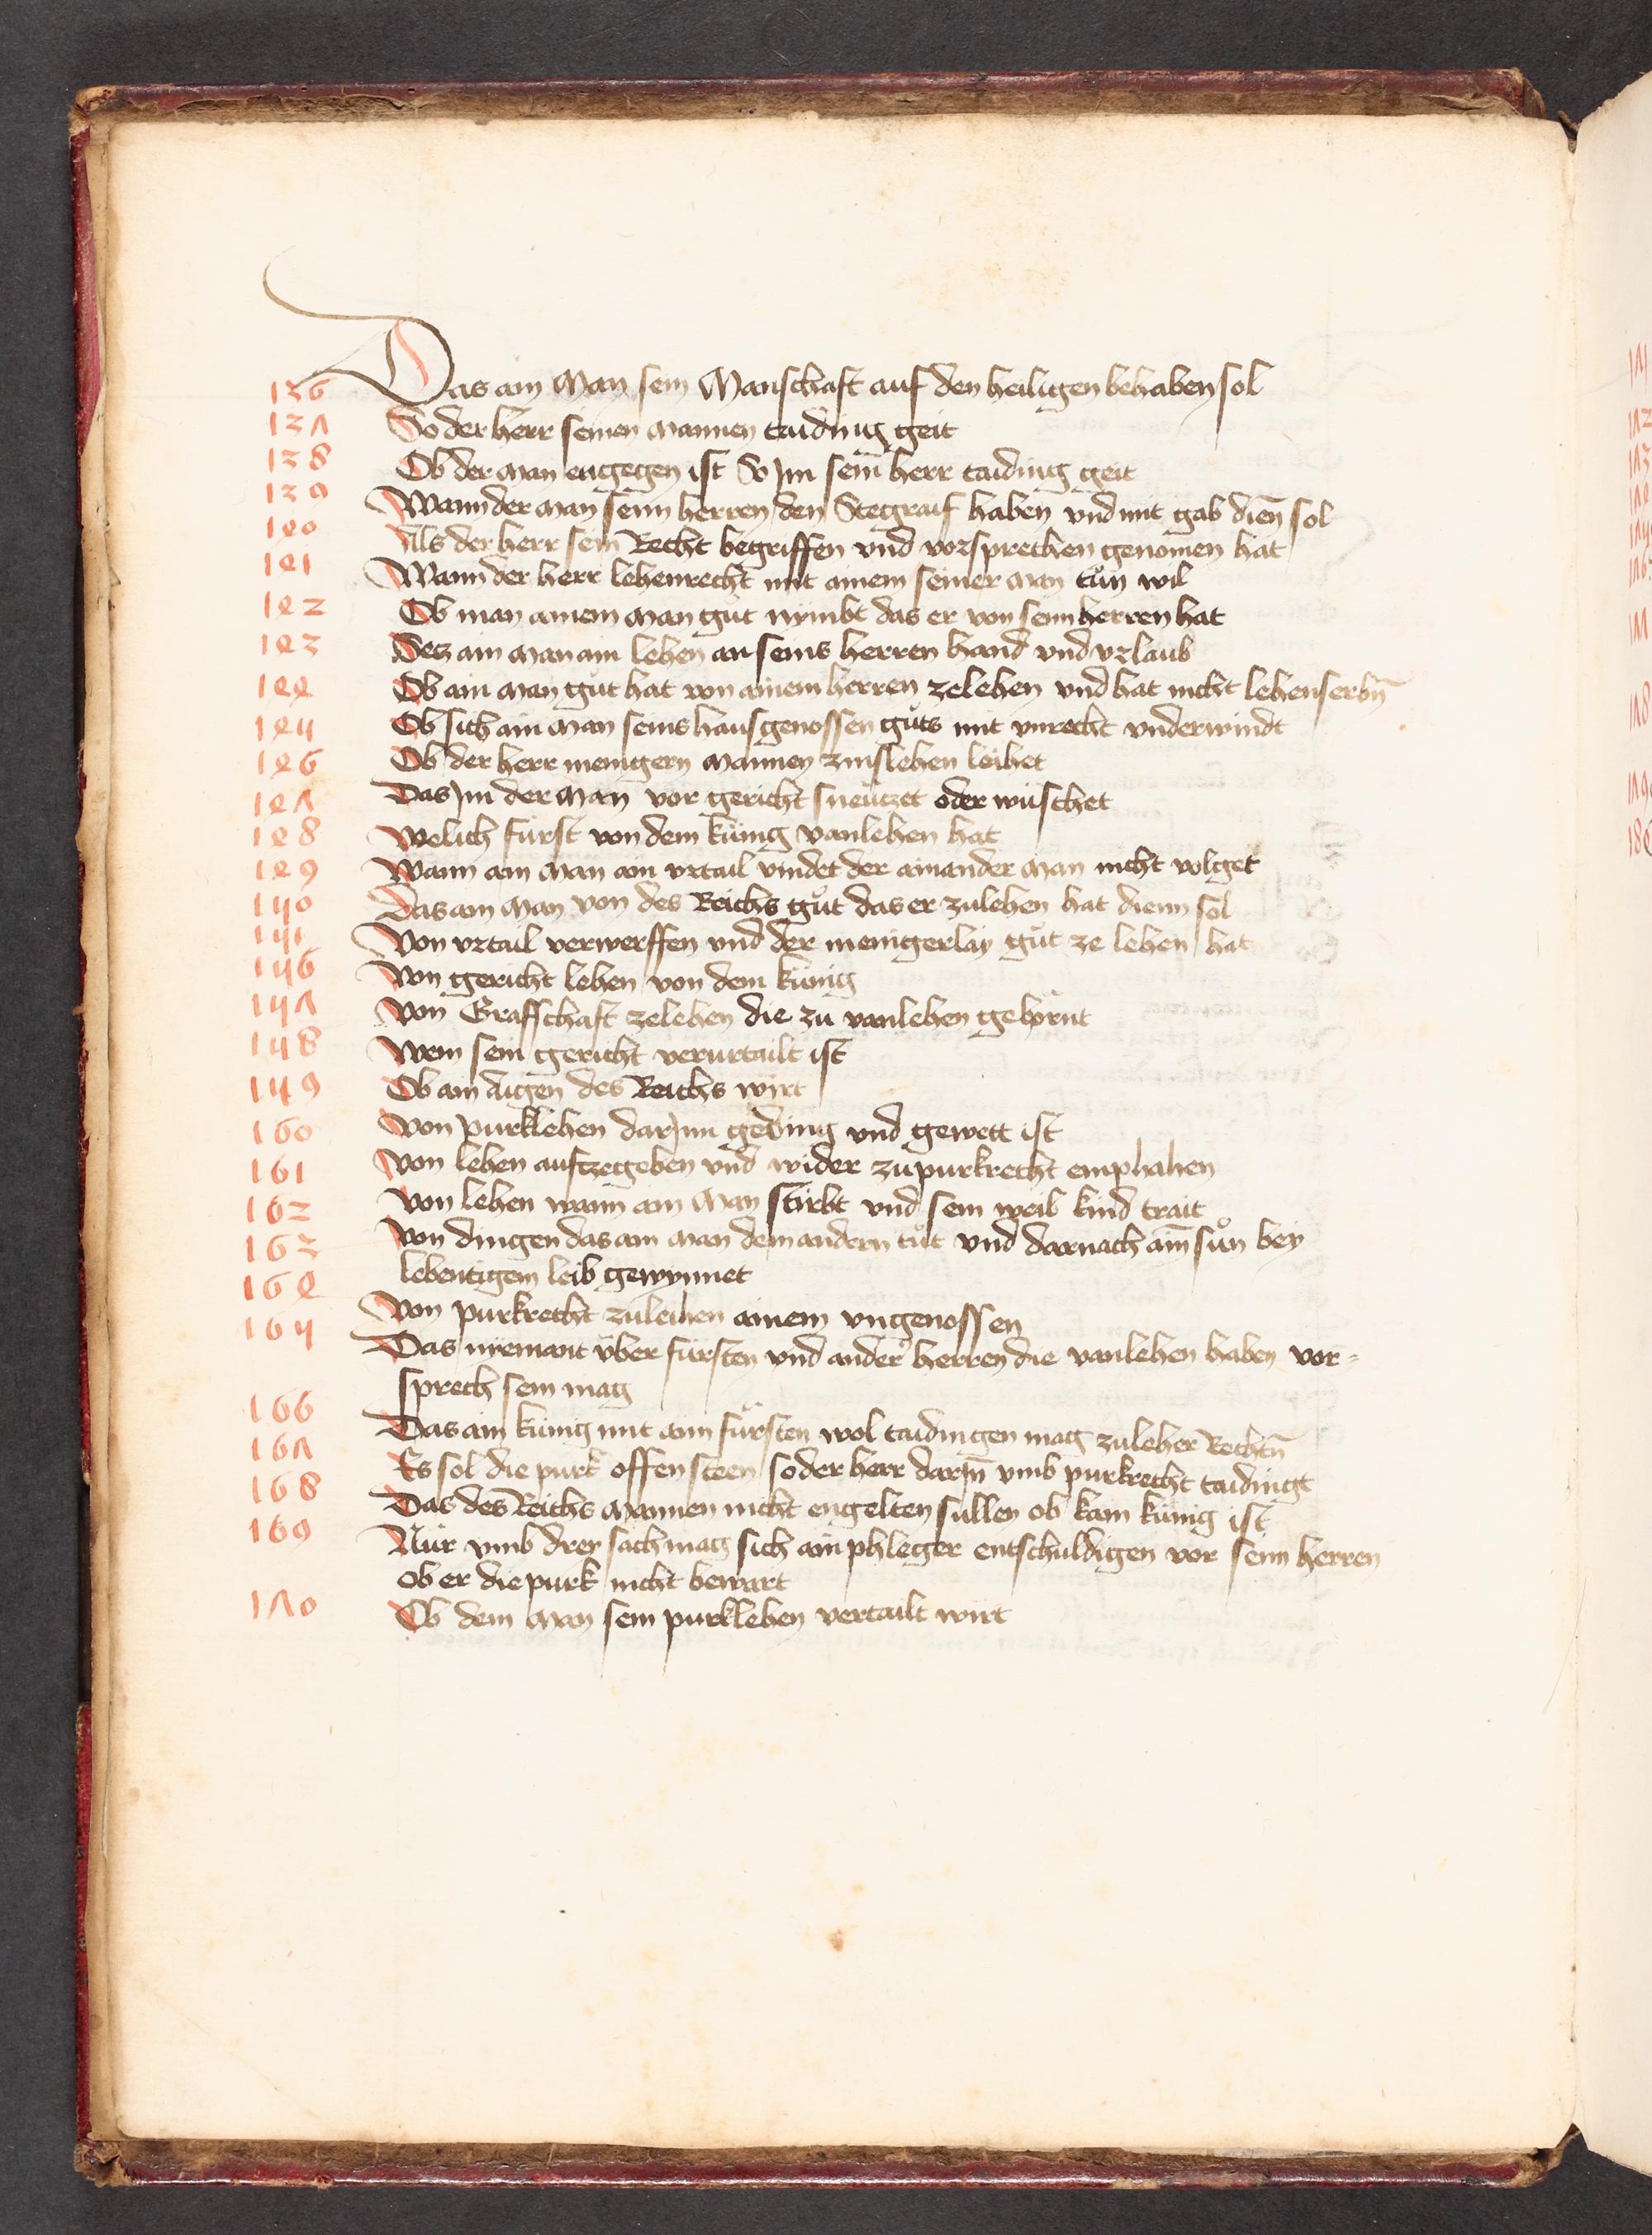 136 Das ain Man sein Manschaft auf den heiligen behaben sol
137 So der herr seinen mannen taiding geit
138 Ob der man engegen ist So Im sein herr taiding geit
139 Wann der man seim herren den Stegraif haben vnd mit gab dien̄ sol
140 Als der herr sein Recht begriffen vnd vorsprechen genomen hat
141 Wann der herr lehenrecht mit ainem seiner man tůn wil
142 Ob man ainem man gůt nymbt das er von seim herren hat
143 Setz ain man ain lehen an seins herren hand vnd vrlaub
144 Ob ain man gůt hat von ainem herren zelehen vnd hat nicht lehenserbn̄
145 Ob sich ain man seins hausgenossen gůts mit vnrecht vnderwindt
146 Ob der herr menigern mannen zinslehen leihet
147 Das Im der man vor gericht sneutzet oder wuschet
148 Welich fürst von dem künig vanlehen hat
149 Wann ain man ain vrtail vindet der ain ander man nicht volget
150 Das ain man von des Reichs gůt das er zulehen hat dienn sol
151 Von vrtail verwerffen vnd der menigerlay gůt ze lehen hat
156 Von gericht lehen von dem künig
157 Von Graffschaft zelehen die zu vanlehen gehörnt
158 Wem sein gericht verurtailt ist
159 Ob ain aigen des Reichs wirt
160 Von purklehen darInn geding vnd gewett ist
161 Von lehen aufzegeben vnd wider zu purkrecht emphahen
162 Von lehen wann ain man stirbt vnd sein weib kind trait
163 Von dingen das ain man dem andern tůt vnd darnach ain̄ sůn bey
lebentigem leib gewynnet
164 Von purkrecht zuleihen ainem vngenossen
165 Das nyemant über fürsten vnd ander herren die vanlehen haben vor-
sprech sein mag
166 Das ain künig mit aim fürsten wol taidingen mag zuleher Rechtn̄
167 Es sol die purk offen steen so der herr darIn̄ vmb purkrecht taidingt
168 Das des Reichs mannen nicht engelten sullen ob kain künig ist
169 Nur vmb drey sach mag sich ain phleger entschuldigen vor seim herren
ob er die purk nicht bewart
170 Ob dem man sein purklehen vertailt wirt